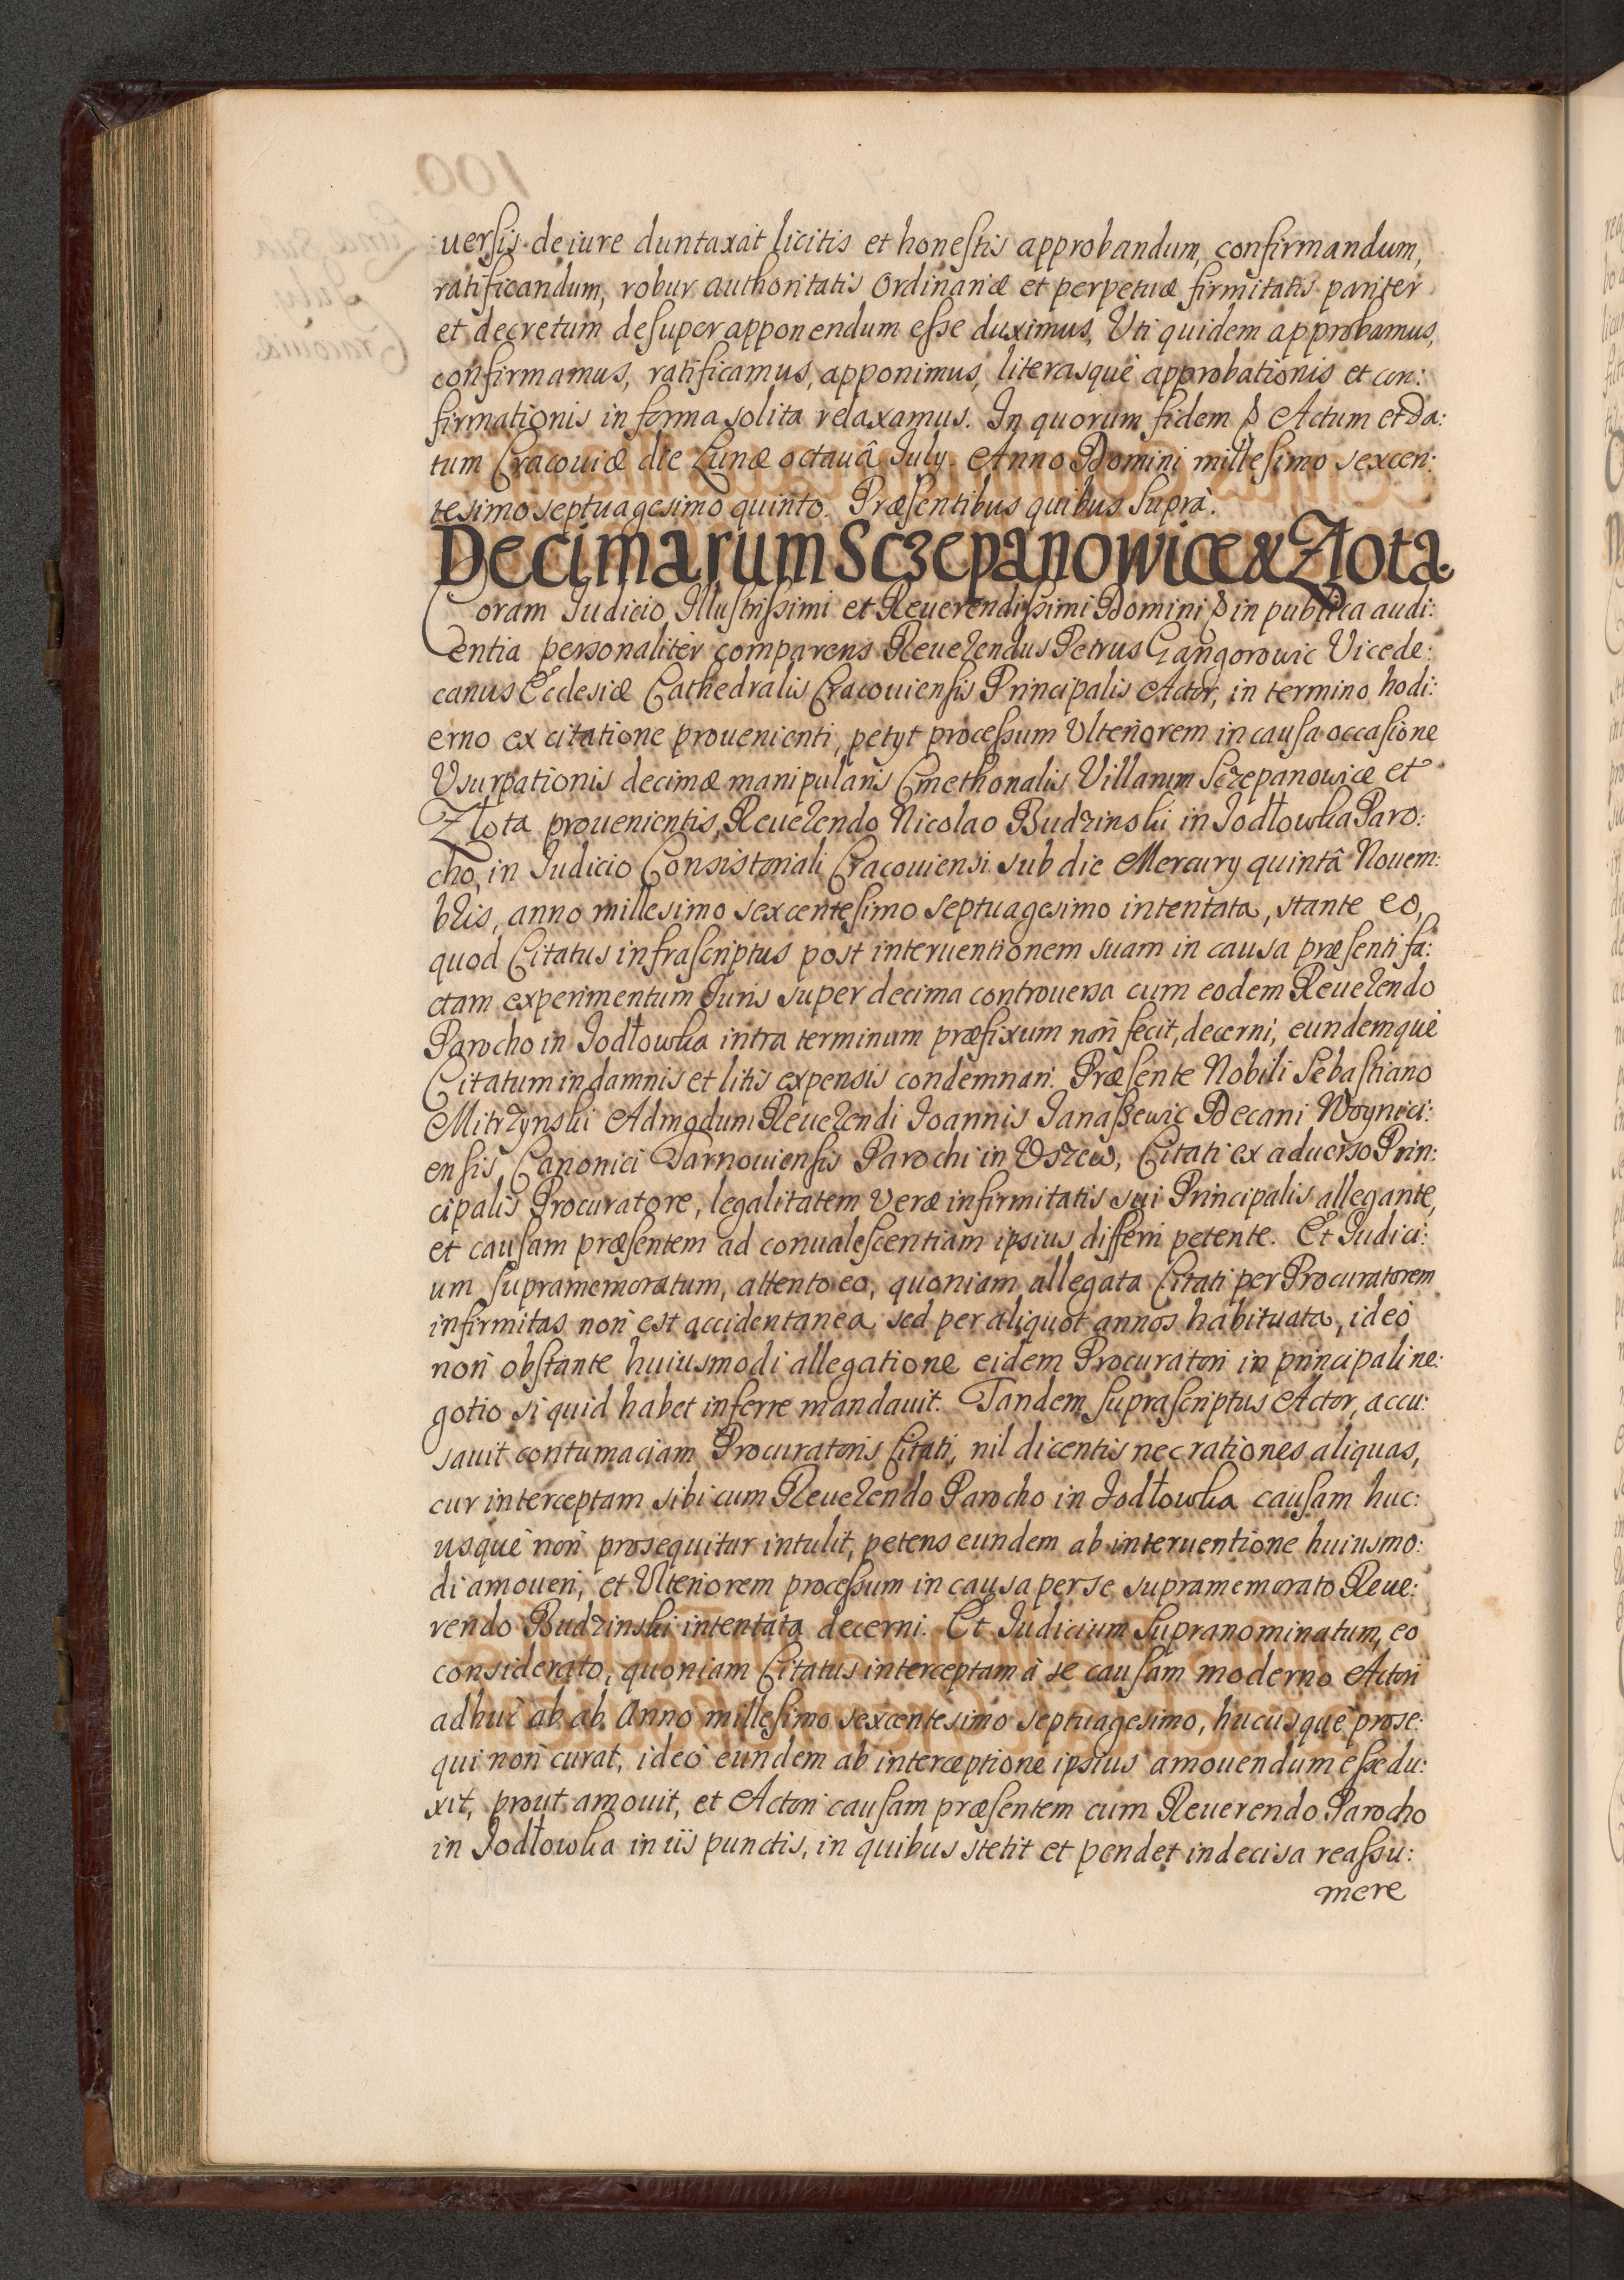 uersis de iure duntaxat licitis et honestis approbandum, confirmandum,
ratificandum, robur authoritatis Ordinariæ et perpetuæ firmitatis pariter
et decretum desuper apponendum esse duximus, Vti quidem approbamus,
confirmamus, ratificamus, apponimus, literasquè approbationis et con:
firmationis in forma solita relaxamus. In quorum fidem & Actum et Da:
tum Cracouiæ die Lunæ octauâ July. Anno Domini millesimo sexcen:
tesimo septuagesimo quinto. Præsentibus quibus suprà.
Decimarum Sczepanowicæ & Złota.
Coram Iudicio Illustrissimi et Reuerendissimi Domini & in publica audi:
entia personalitèr comparens Reuerendus Petrus Gangorowic Vicede:
canus Ecclesiæ Cathedralis Cracouiensis Principalis Actor, in termino hodi:
erno ex citatione prouenienti, petyt processum Vlteriorem in causa occasione
Vsurpationis decimæ manipularis Cmethonalis Villarum Sczepanowicæ et
Złota prouenientis, Reuerendo Nicolao Budzinski in Jodłowka Paro:
cho, in Iudicio Consistoriali Cracouiensi sub die Mercury quintâ Nouem:
bris, anno millesimo sexcentesimo septuagesimo intentata, stante eo,
quod Citatus infrascriptus post interuentionem suam in causa præsenti fa:
ctam experimentum Iuris super decima controuersa cum eodem Reuerendo
Parocho in Jodłowka intra terminum præfixum non fecit, decerni, eundemquè
Citatum in damnis et litis expensis condemnari. Præsente Nobili Sebastiano
Mitrzynski Admodum Reuerendi Ioannis Janaszewic Decani Woynici:
ensis, Canonici Tarnouiensis Parochi in Vszew, Citati ex aduerso Prin:
cipalis Procuratore, legalitatem veræ infirmitatis sui Principalis allegante,
et causam præsentem ad conualescentiam ipsius differri petente. Et Iudici:
um supramemoratum, attento eo, quoniam allegata Citati per Procuratorem
infirmitas non est accidentanea sed per aliquot annos habituata, ideò
non obstante huiusmodi allegatione eidem Procuratori in principali ne:
gotio si quid habet inferre mandauit. Tandem suprascriptus Actor, accu:
sauit contumaciam Procuratoris Citati, nil dicentis nec rationes aliquas,
cur interceptam sibi cum Reuerendo Parocho in Jodłowka causam huc:
usquè non prosequitur intulit, petens eundem ab interuentione huiusmo:
di amoueri, et Vlteriorem processum in causa per se supramemorato Reue:
rendo Budzinski intentata decerni. Et Iudicium supranominatum, eo
considerato, quoniam Citatus interceptam à se causam moderno Actori
adhuc ab ab Anno millesimo sexcentesimo septuagesimo, hucusquè prose:
qui non curat, ideò eundem ab interceptione ipsius amouendum esse du:
xit, prout amouit, et Actori causam præsentem cum Reuerendo Parocho
in Jodłowka in iis punctis, in quibus stetit et pendet indecisa reassu:
mere